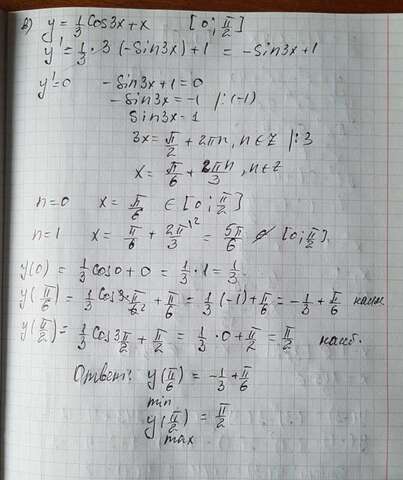 в) y = 1/3 cos3x + x [0; π/2]
y' = 1/3 · 3 (-Sin3x) + 1 = -Sin3x + 1
y' = 0 -Sin3x + 1 = 0
-Sin3x = -1 |:(-1)
Sin3x = 1
3x = π/2 + 2πn, n∈Z |:3
x = π/6 + 2πn/3, n∈Z
n=0 x = π/6 ∈ [0; π/2]
n=1 x = π/6 + 2π/3 = 5π/6 ∉ [0; π/2]
y(0) = 1/3 cos0 + 0 = 1/3 · 1 = 1/3.
y(π/6) = 1/3 cos3π/6 + π/6 = 1/3 (-1) + π/6 = -1/3 + π/6 наим
y(π/2) = 1/3 Cos3π/2 + π/2 = 1/3 · 0 + π/2 = π/2 наиб.
Ответ: y(π/6) = -1/3 + π/6
min
y(π/2) = π/2
max